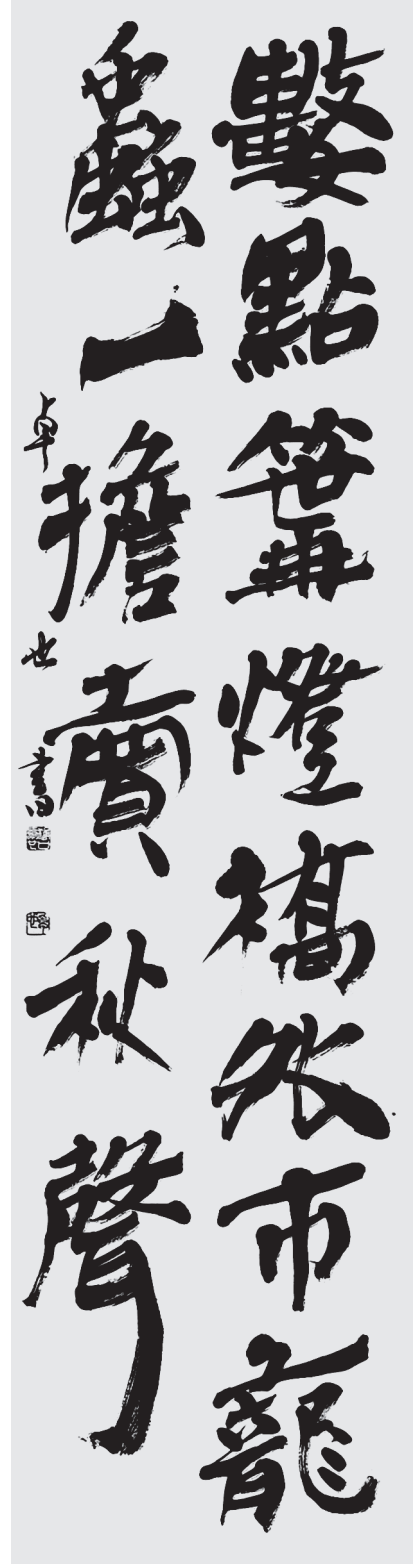 數點篝燈橋外市籠
蟲一擔賣秋聲
卓也書